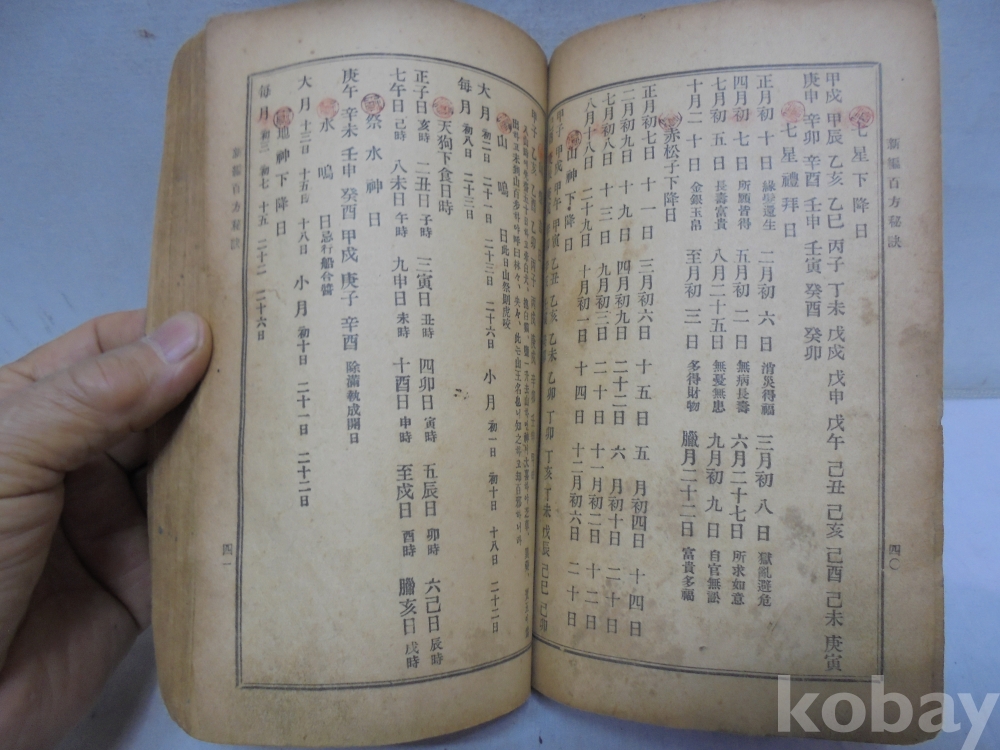 新編百方秘訣
四〇
七星下降日
甲戌 甲辰 乙亥 乙巳 丙子 丁未 戊戌 戊申 戊午 己丑 己亥 己酉 己未 庚寅
庚申 辛卯 辛酉 壬申 壬寅 癸酉 癸卯
七星禮拜日
正月初十日 二月初六日 消災得福 三月初八日 獄亂避危
四月初七日 所願皆得 五月初二日 無病長壽 六月二十七日 所求如意
七月初五日 長壽富貴 八月二十五日 無憂無患 九月初九日 自官無訟
十月二十日 金銀玉帛 至月初三日 多得財物 臘月二十二日 富貴多福
赤松子下降日
正月初七日 十一日 三月初六日 十五日 五月初四日 十四日
二月初九日 十九日 四月初九日 二十二日 六月初十日 二十日
七月初八日 十八日 九月初三日 二十日 十一月初二日 十二日
八月十八日 二十九日 十月初一日 十四日 十二月初六日 二十日
山神下降日
甲子 甲戌 甲午 甲寅 乙丑 乙亥 乙未 乙卯 丁卯 丁亥 丁未 戊辰 己巳 己卯
山鳴日 此日山祭則虎咬
大月 初二日 二十一日 二十三日 二十六日 小月 初一日 初十日 十八日 二十二日
每月 初八日 二十三日
天狗下食日時
正子日 亥時 二丑日 子時 三寅日 丑時 四卯日 寅時 五辰日 卯時 六己日 辰時
七午日 己時 八未日 午時 九申日 未時 十酉日 申時 至戌日 酉時 臘亥日 戌時
祭水神日
庚午 辛未 壬申 癸酉 甲戌 庚子 辛酉 除滿執成開日
水鳴日 忌行船合醬
大月 十三日 十五日 十八日 小月 初十日 二十一日 二十二日
地神下降日
每月 初三 初七 十五 二十二 二十六日
新編百方秘訣
四一
kobay